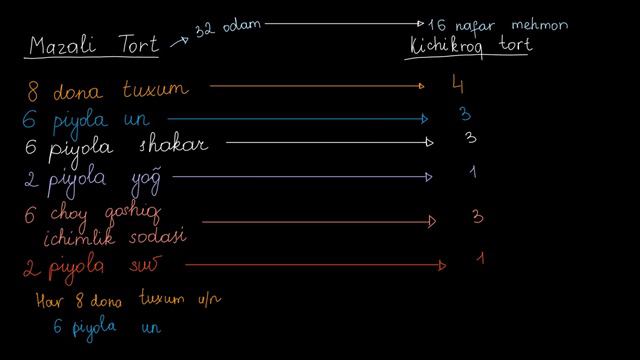 Mazali Tort
32 odam
16 nafar mehmon
Kichikroq tort
8 dona tuxum
4
6 piyola un
3
6 piyola shakar
3
2 piyola yoğ
1
6 choy qoshiq
ichimlik sodasi
3
2 piyola suv
1
Har 8 dona tuxum u/n
6 piyola un